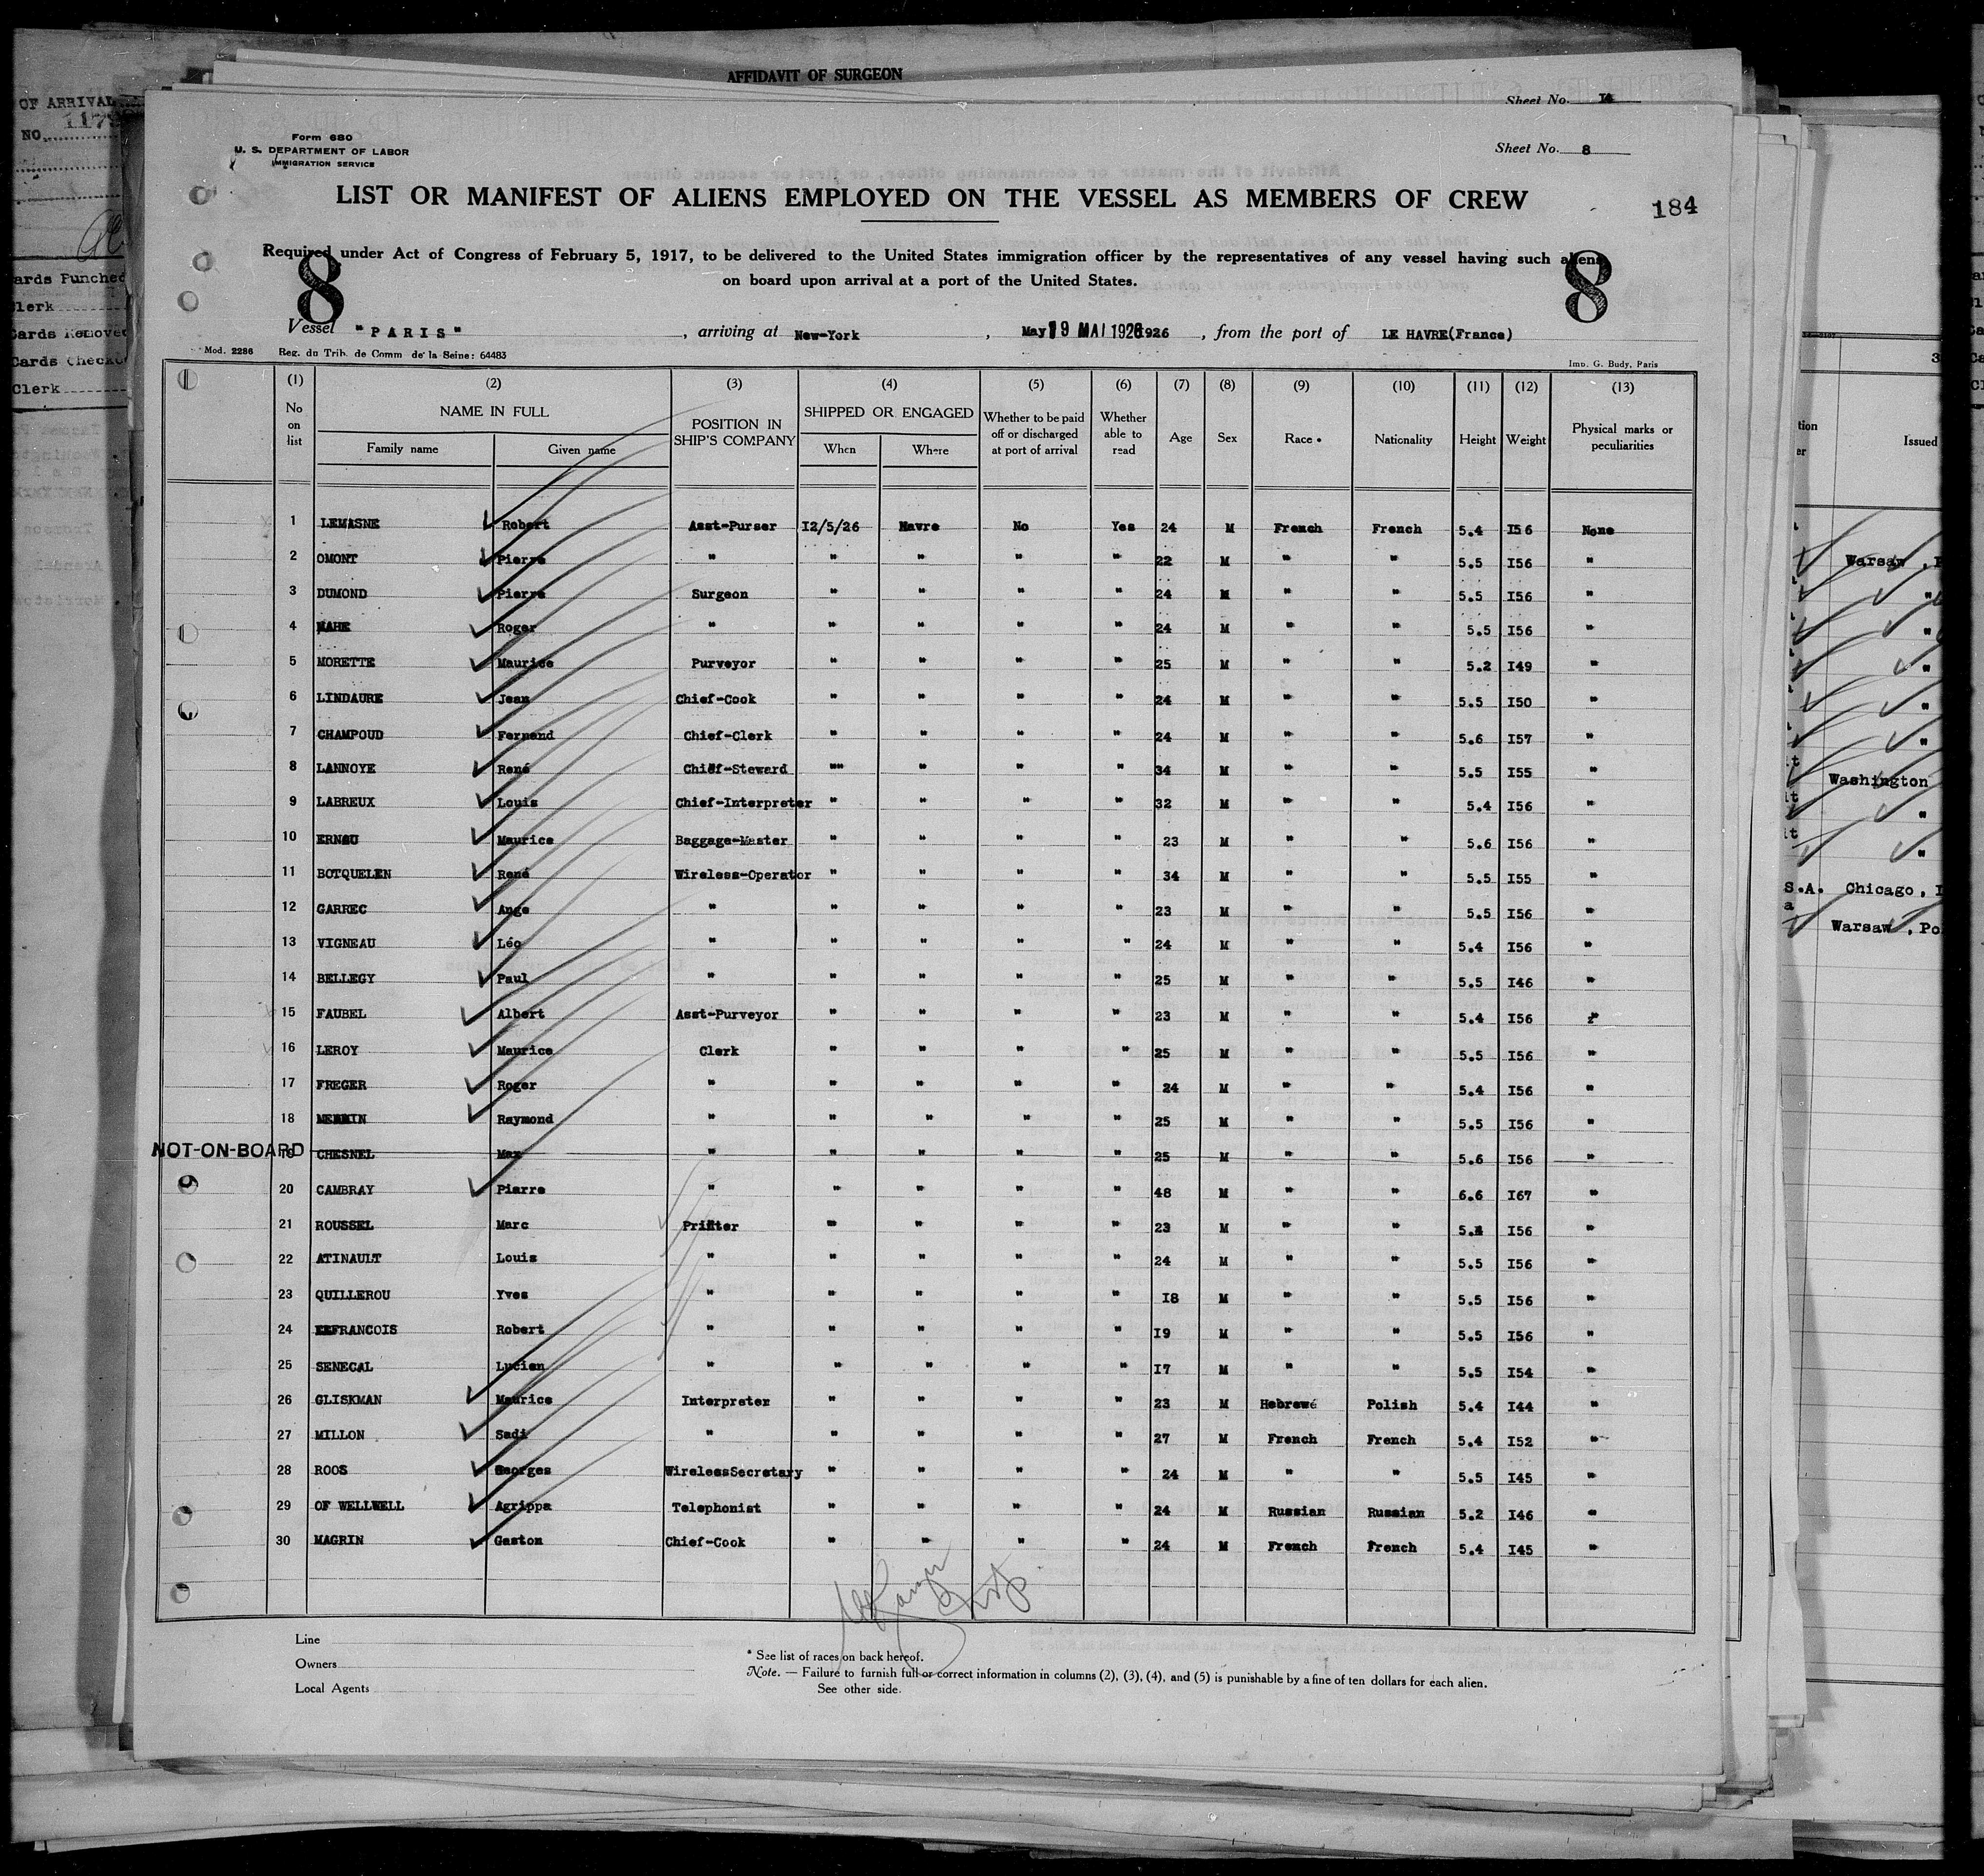 AFFIDAVIT OF SURGEON
OF ARRIVAL
NO.
Sheet No.
Form 680
U. S. DEPARTMENT OF LABOR
IMMIGRATION SERVICE
Sheet No. 8
LIST OR MANIFEST OF ALIENS EMPLOYED ON THE VESSEL AS MEMBERS OF CREW
184
Required under Act of Congress of February 5, 1917, to be delivered to the United States immigration officer by the representatives of any vessel having such aliens
on board upon arrival at a port of the United States.
8 8
Vessel "PARIS", arriving at New-York, May 19 MAI 1926 1926, from the port of LE HAVRE(France)
Mod. 2286 Reg. du Trib. de Comm de la Seine: 64483 Imp. G. Budy, Paris
(1) (2) (3) (4) (5) (6) (7) (8) (9) (10) (11) (12) (13)
No on list NAME IN FULL POSITION IN SHIP'S COMPANY SHIPPED OR ENGAGED Whether to be paid off or discharged at port of arrival Whether able to read Age Sex Race * Nationality Height Weight Physical marks or peculiarities
Family name Given name When Where
1 LEMASNE Robert Asst-Purser I2/5/26 Havre No Yes 24 M French French 5.4 I56 None
2 OMONT Pierre " " " " " 22 M " " 5.5 I56 "
3 DUMOND Pierre Surgeon " " " " 24 M " " 5.5 I56 "
4 MAHE Roger " " " " " 24 M " " 5.5 I56 "
5 MORETTE Maurice Purveyor " " " " 25 M " " 5.2 I49 "
6 LINDAURE Jean Chief-Cook " " " " 24 M " " 5.5 I50 "
7 CHAMPOUD Fernand Chief-Clerk " " " " 24 M " " 5.6 I57 "
8 LANNOYE René Chief-Steward "" " " " 34 M " " 5.5 I55 "
9 LABREUX Louis Chief-Interpreter " " " " 32 M " " 5.4 I56 "
10 ERNOU Maurice Baggage-Master " " " " 23 M " " 5.6 I56 "
11 BOTQUELEN René Wireless-Operator " " " " 34 M " " 5.5 I55 "
12 GARREC Ange " " " " " 23 M " " 5.5 I56 "
13 VIGNEAU Léo " " " " " 24 M " " 5.4 I56 "
14 BELLEGY Paul " " " " " 25 M " " 5.5 I46 "
15 FAUBEL Albert Asst-Purveyor " " " " 23 M " " 5.4 I56 "
16 LEROY Maurice Clerk " " " " 25 M " " 5.5 I56 "
17 FREGER Roger " " " " " 24 M " " 5.4 I56 "
18 Raymond " " " " " 25 M " " 5.5 I56 "
NOT-ON-BOARD 19 CHESNEL Max " " " " " 25 M " " 5.6 I56 "
20 CAMBRAY Pierre " " " " " 48 M " " 6.6 I67 "
21 ROUSSEL Marc Printer " " " " 23 M " " 5.4 I56 "
22 ATINAULT Louis " " " " " 24 M " " 5.5 I56 "
23 QUILLEROU Yves " " " " " I8 M " " 5.5 I56 "
24 LEFRANCOIS Robert " " " " " I9 M " " 5.5 I56 "
25 SENECAL Lucien " " " " " I7 M " " 5.5 I54 "
26 GLISKMAN Maurice Interpreter " " " " 23 M Hebrewé Polish 5.4 I44 "
27 MILLON Sadi " " " " " 27 M French French 5.4 I52 "
28 ROOS Georges WirelessSecretary " " " " 24 M " " 5.5 I45 "
29 OF WELLWELL Agrippa Telephonist " " " " 24 M Russian Russian 5.2 I46 "
30 MAGRIN Gaston Chief-Cook " " " " 24 M French French 5.4 I45 "
Line
Owners
Local Agents
* See list of races on back hereof.
Note. — Failure to furnish full or correct information in columns (2), (3), (4), and (5) is punishable by a fine of ten dollars for each alien.
See other side.
Cards Punched
Clerk
Cards Removed
Clerk
Issued
Warsaw
Washington
S.A. Chicago,
Warsaw